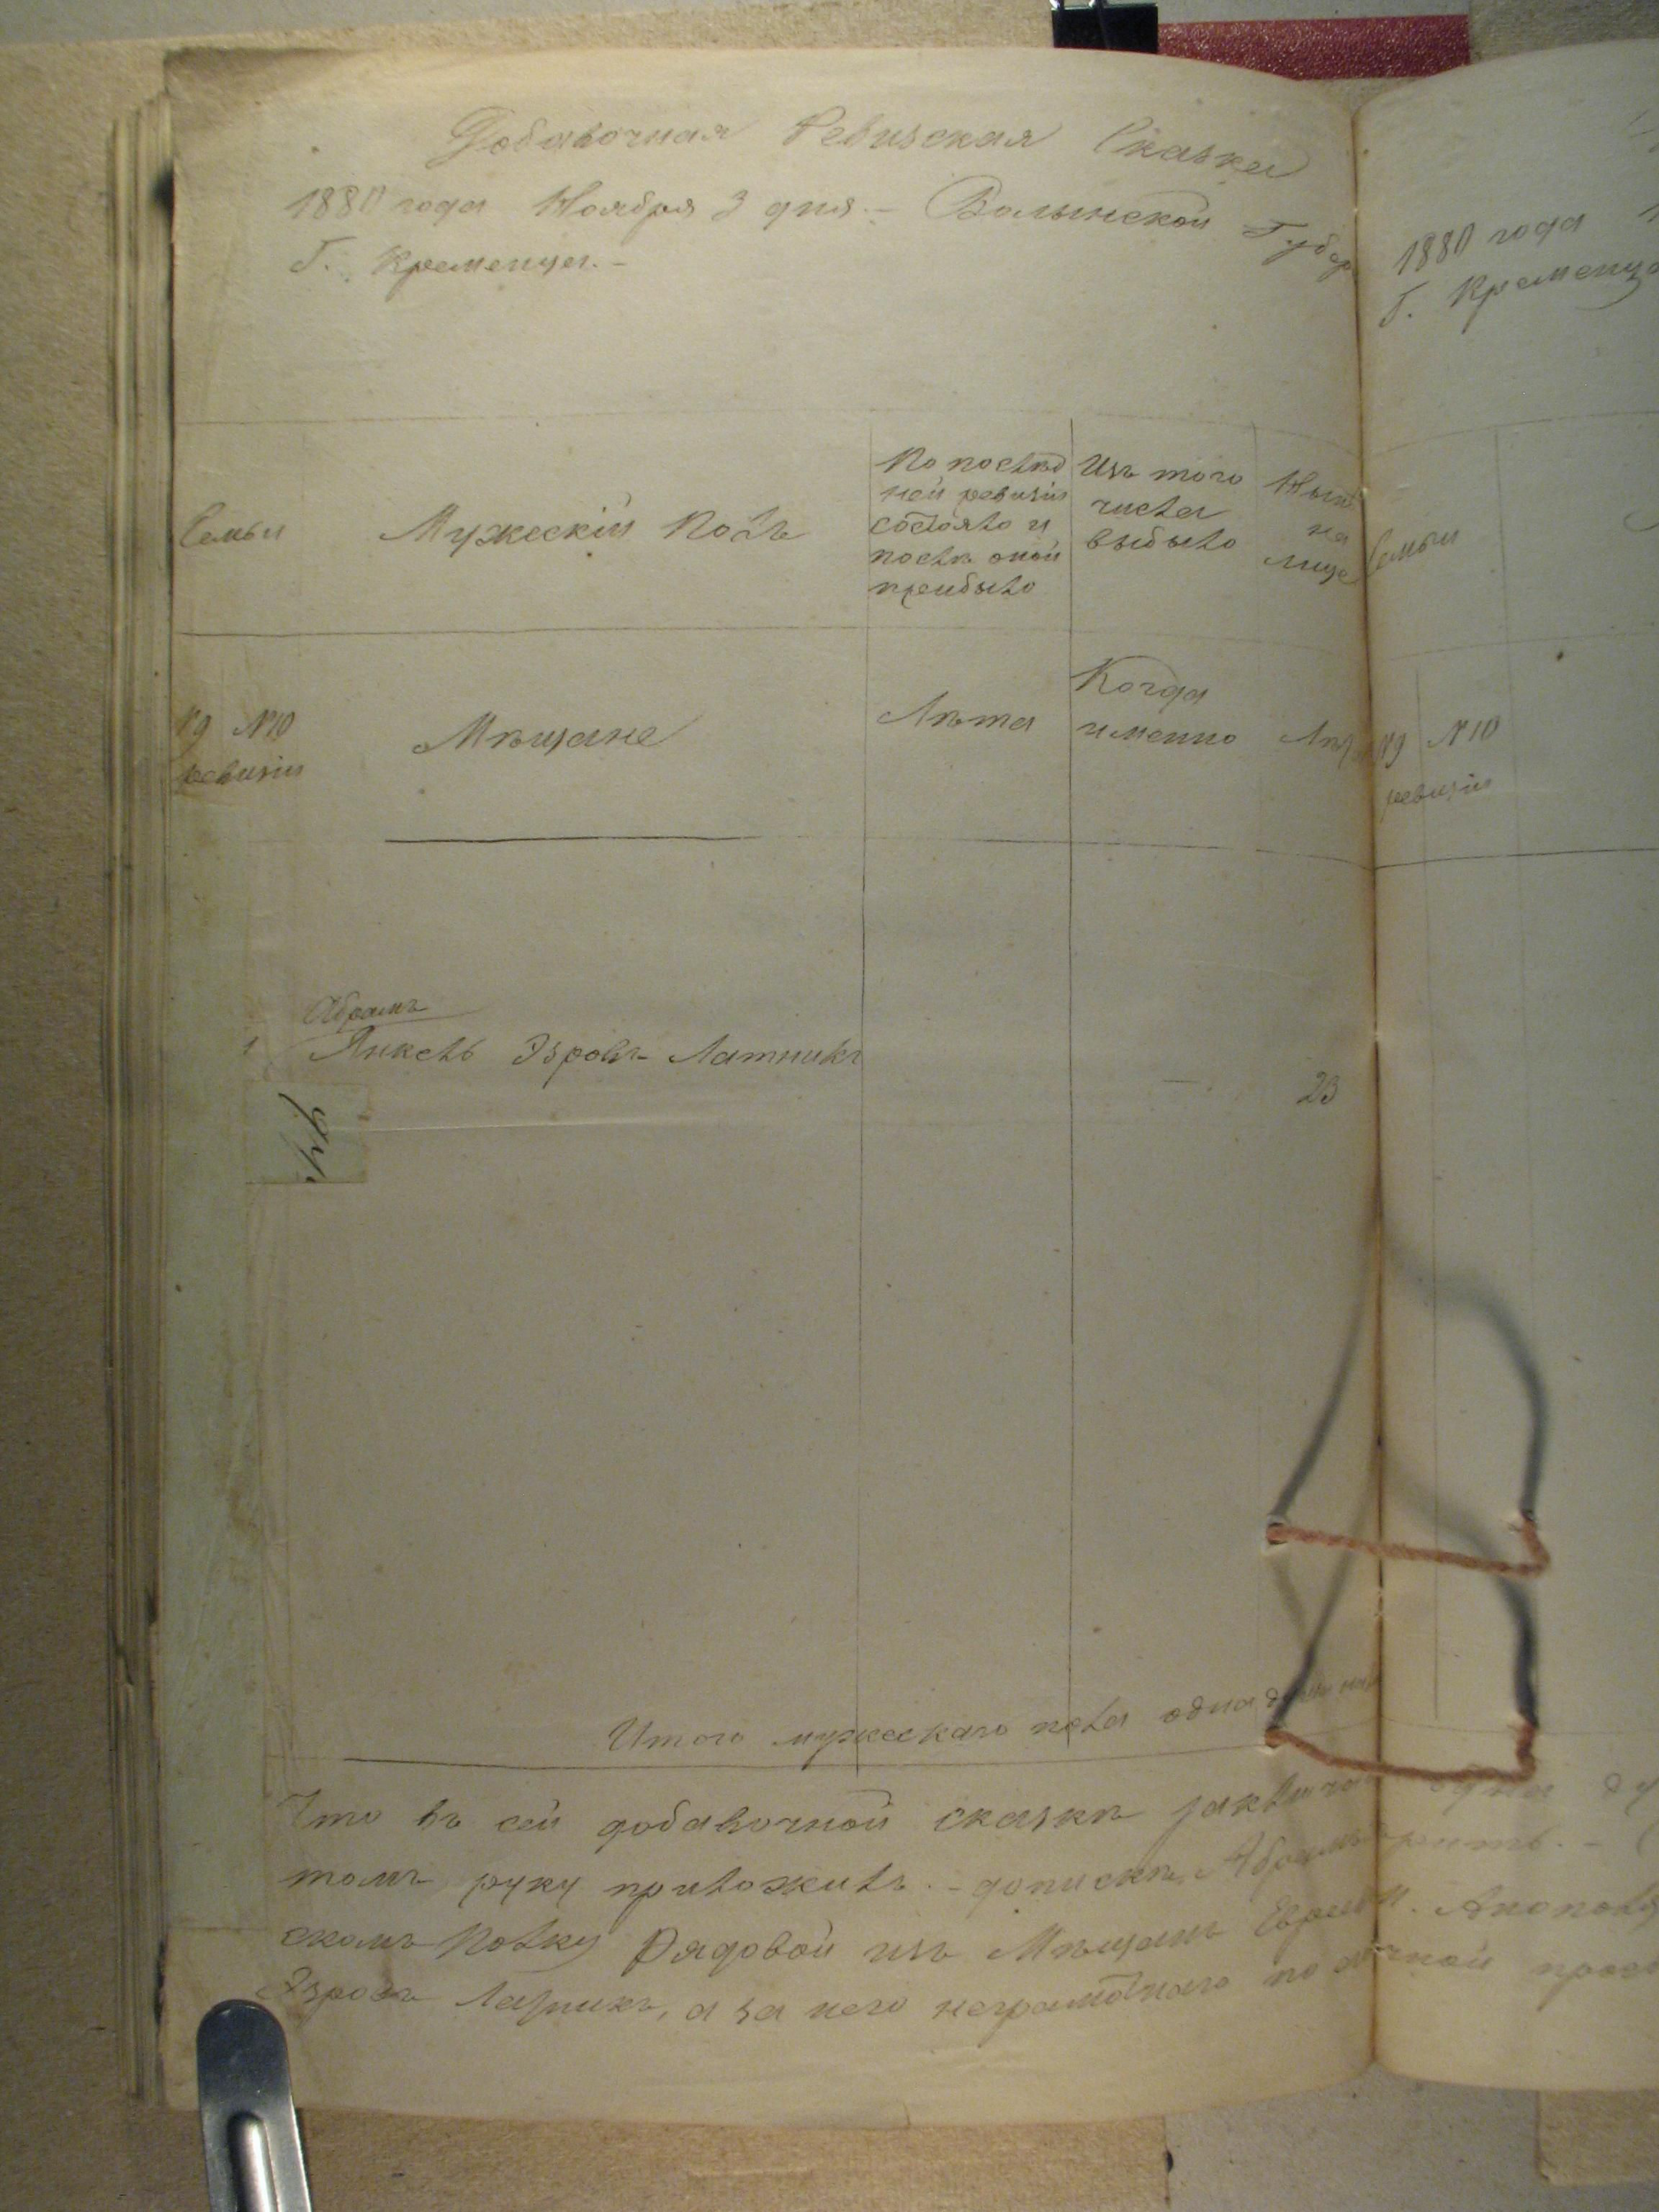 Добавочная Ревизская Сказка
1880 года Ноября 3 дня. – Волынской Губер
Г. Кременца. –
Семьи
Мужескій Полъ
По послѣд
ней ревизіи
состояло и
послѣ оной
прибыло
Изъ того
числа
выбыло
Нынѣ
на
лице
№ 10
ревизіи
Мѣщане
Лѣта
Когда
именно
Лѣта
Абрамъ
1 Янкель Эзровъ Латникъ
23
Итого мужескаго пола одна душа
Что въ сей добавочной сказкѣ
ручку приложилъ. – допискѣ, Абрамъ
скомъ Полку Рядовой изъ Мѣщанъ Еврей
Эзровъ Латникъ, а за него неграмотнаго по личной
1880 года
Г. Кременца
Семьи
№ 10
ревизіи